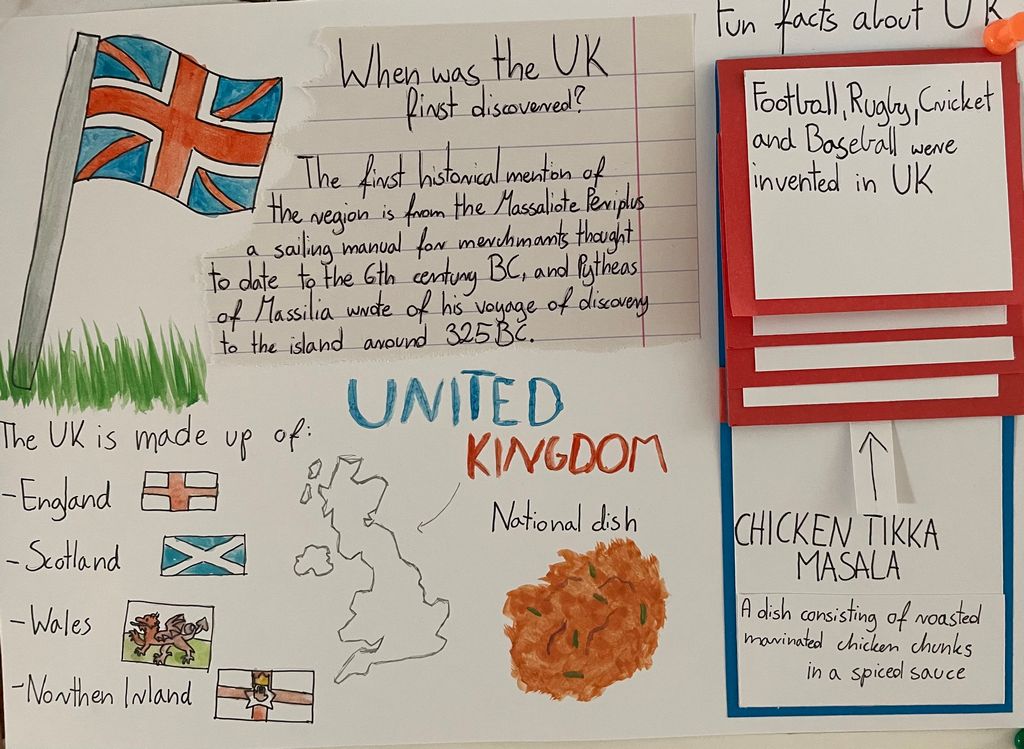 When was the UK
first discovered?
The first historical mention of
the region is from the Massaliote Periplus
a sailing manual for merchmants thought
to date to the 6th century BC, and Pytheas
of Massilia wrote of his voyage of discovery
to the island around 325 BC.
UNITED
KINGDOM
The UK is made up of:
- England
- Scotland
- Wales
- Northen Irland
National dish
Fun facts about UK
Football, Rugby, Cricket
and Baseball were
invented in UK
CHICKEN TIKKA
MASALA
A dish consisting of roasted
marinated chicken chunks
in a spiced sauce